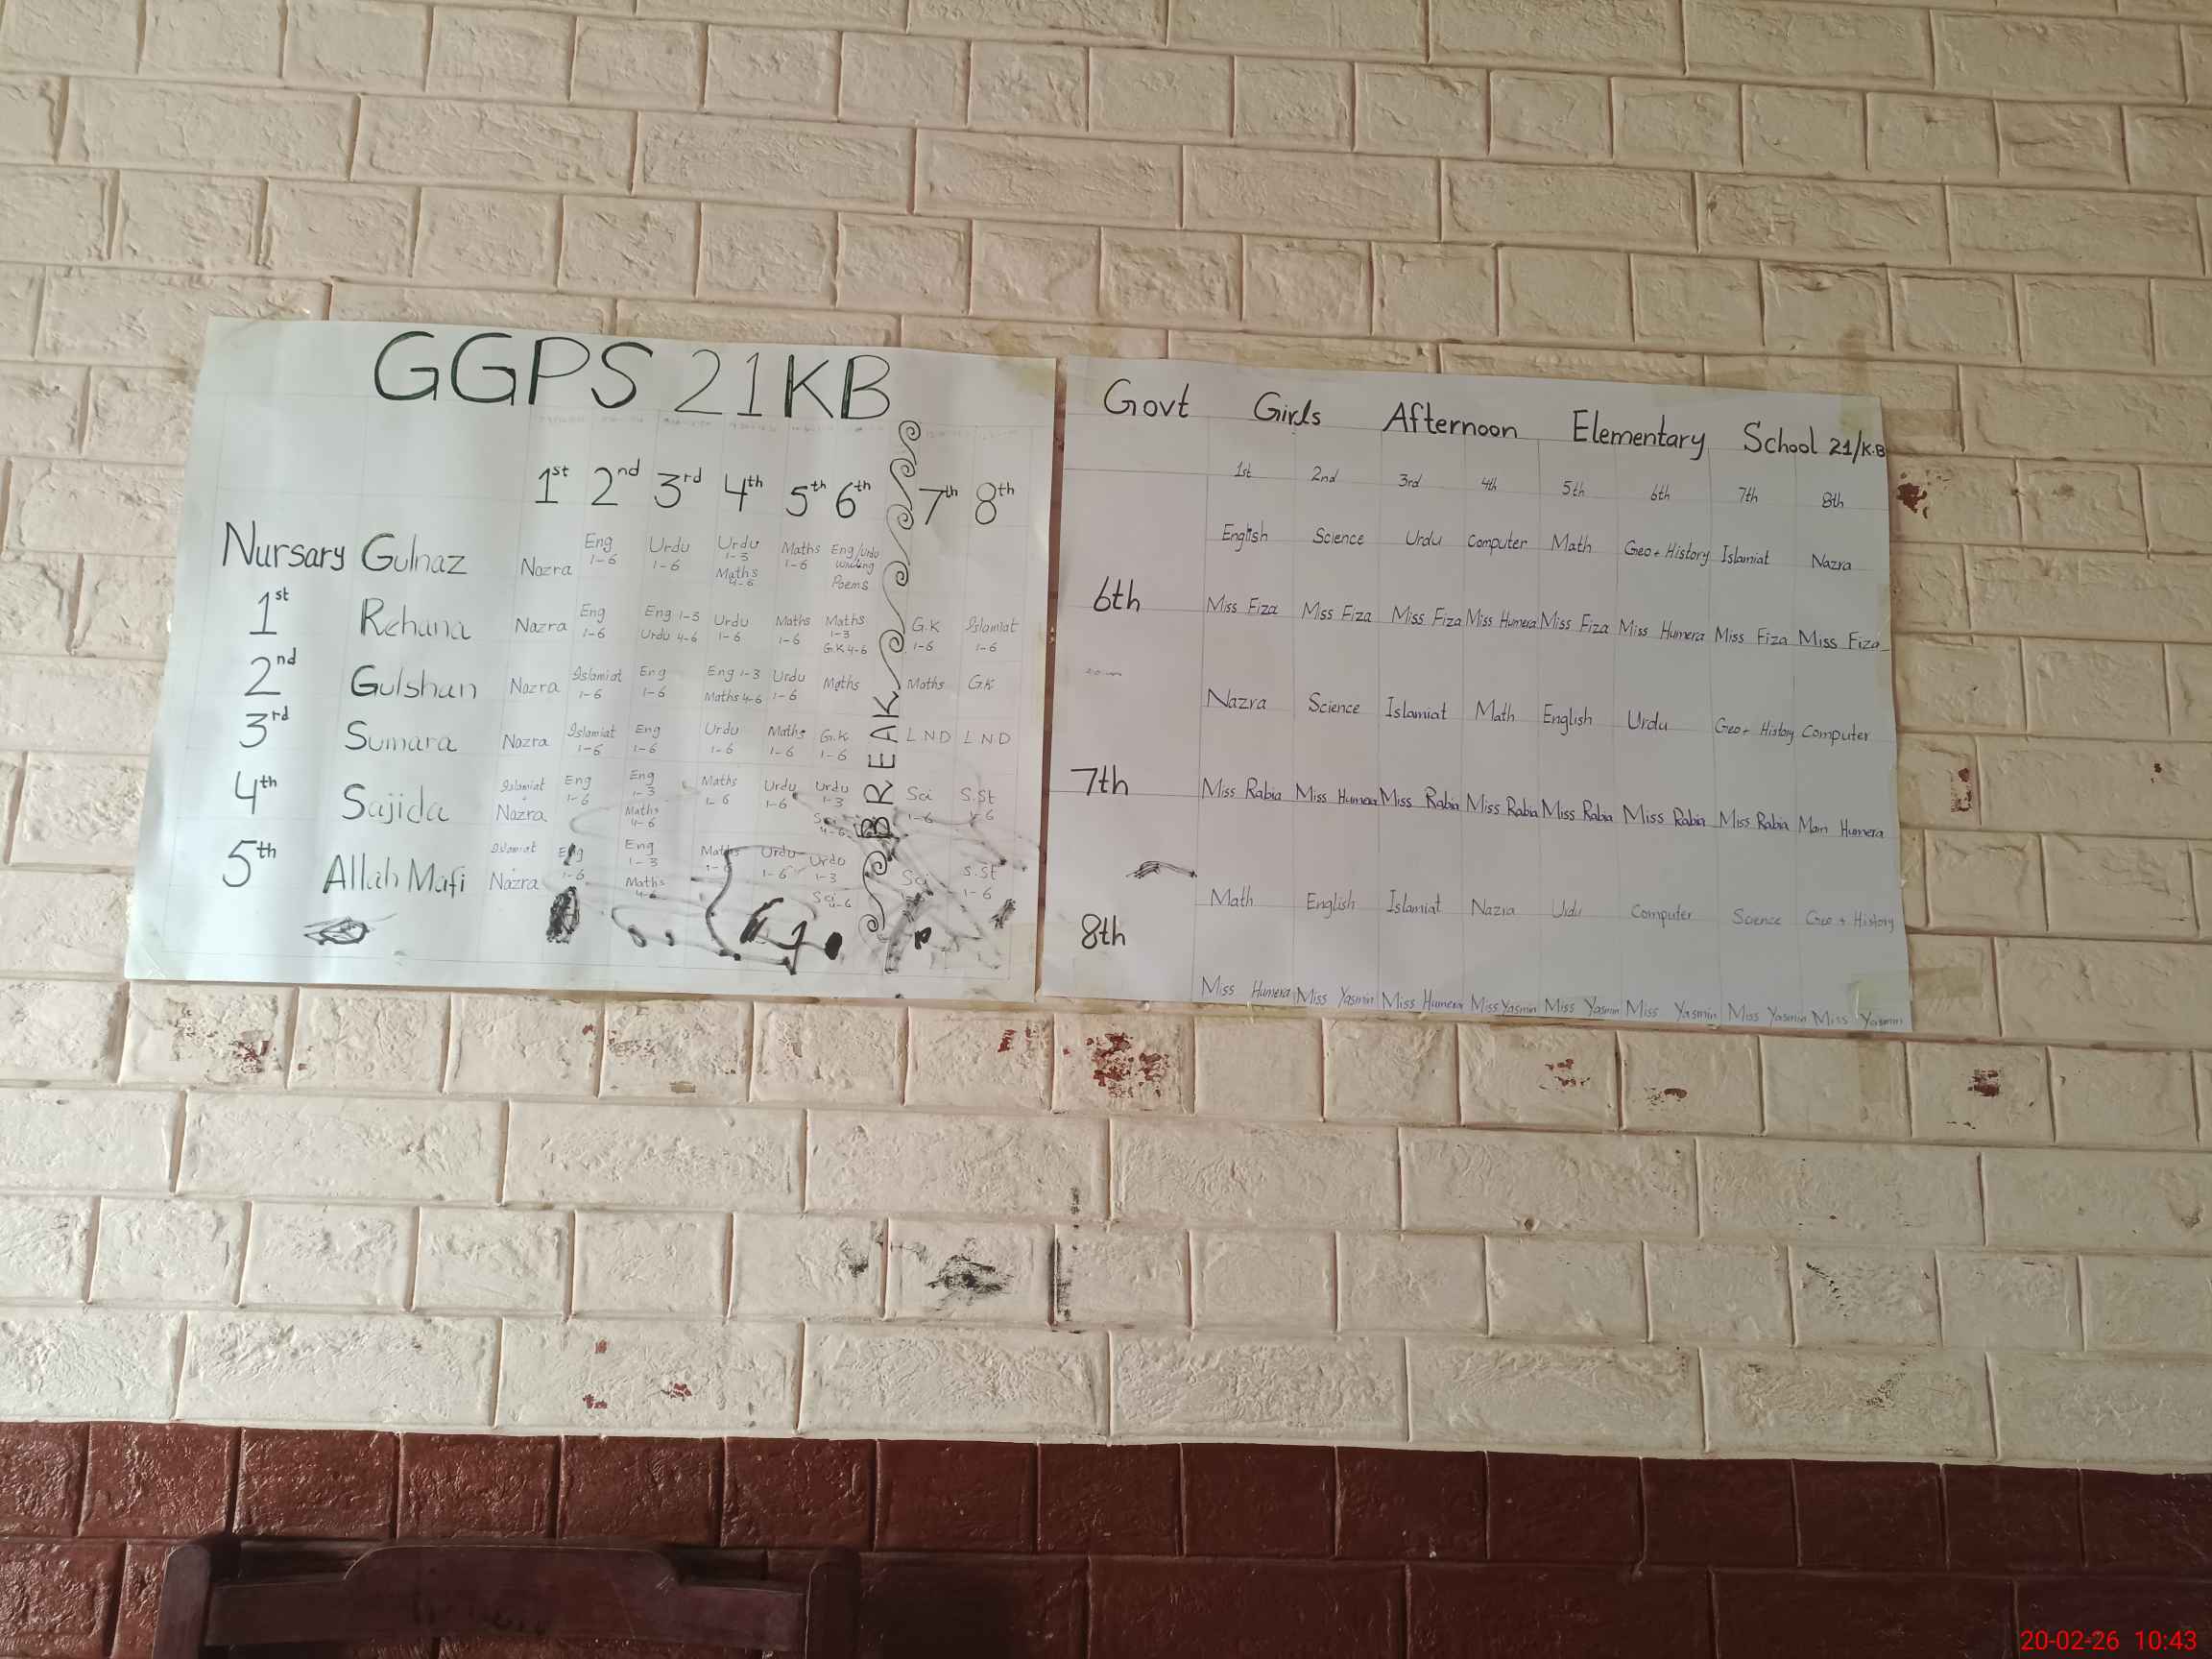 GGPS 21KB
1st 2nd 3rd 4th 5th 6th 7th 8th
Nursary Gulnaz Nazra Eng 1-6 Urdu 1-6 Urdu 1-3 Maths 4-6 Maths 1-6 Eng/Urdu writing Poems
1st Rehana Nazra Eng 1-6 Eng 1-3 Urdu 4-6 Urdu 1-6 Maths 1-6 Maths 1-3 G.K 4-6 G.K 1-6 Islamiat 1-6
2nd Gulshan Nazra Islamiat 1-6 Eng 1-6 Eng 1-3 Maths 4-6 Urdu 1-6 Maths Maths G.K
3rd Sumara Nazra Islamiat 1-6 Eng 1-6 Urdu 1-6 Maths 1-6 G.K 1-6 LND LND
4th Sajida Islamiat + Nazra Eng 1-6 Eng 1-3 Maths 4-6 Maths 1-6 Urdu 1-6 Urdu 1-3 Sci 4-6 Sci 1-6 S.St 1-6
5th Allah Mafi Islamiat Nazra Eng 1-6 Eng 1-3 Maths 4-6 Maths 1-6 Urdu 1-6 Urdu 1-3 Sci 4-6 Sci S.St 1-6
BREAK
Govt Girls Afternoon Elementary School 21/K.B
1st 2nd 3rd 4th 5th 6th 7th 8th
English Science Urdu Computer Math Geo+ History Islamiat Nazra
6th
Miss Fiza Miss Fiza Miss Fiza Miss Humera Miss Fiza Miss Humera Miss Fiza Miss Fiza
Nazra Science Islamiat Math English Urdu Geo+ History Computer
7th
Miss Rabia Miss Humera Miss Rabia Miss Rabia Miss Rabia Miss Rabia Miss Rabia Mam Humera
Math English Islamiat Nazra Urdu Computer Science Geo + History
8th
Miss Humera Miss Yasmin Miss Humera Miss Yasmin Miss Yasmin Miss Yasmin Miss Yasmin Miss Yasmin
20-02-26 10:43